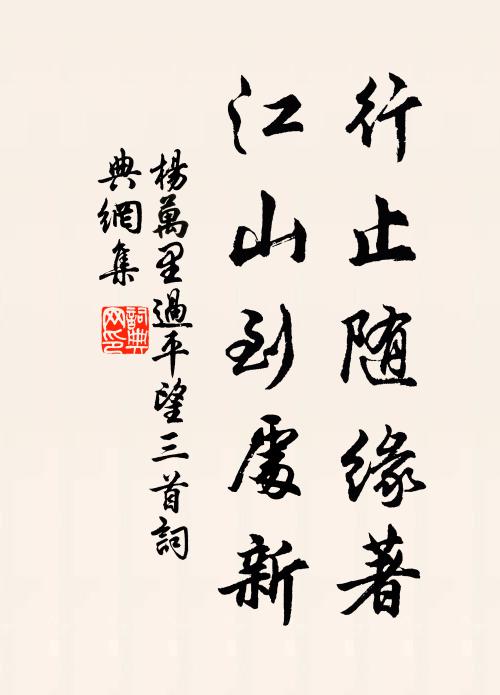 行止随缘著
江山到處新
楊萬里過平望三首詞
典網集
詞典
网印